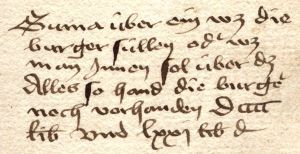 Suma über ein wz die
burger süllen od' wz
man Jnnen sol über dz
Alles so hand die burg'
noch vorhanden Dcccc
lib vnd lxxj lib d